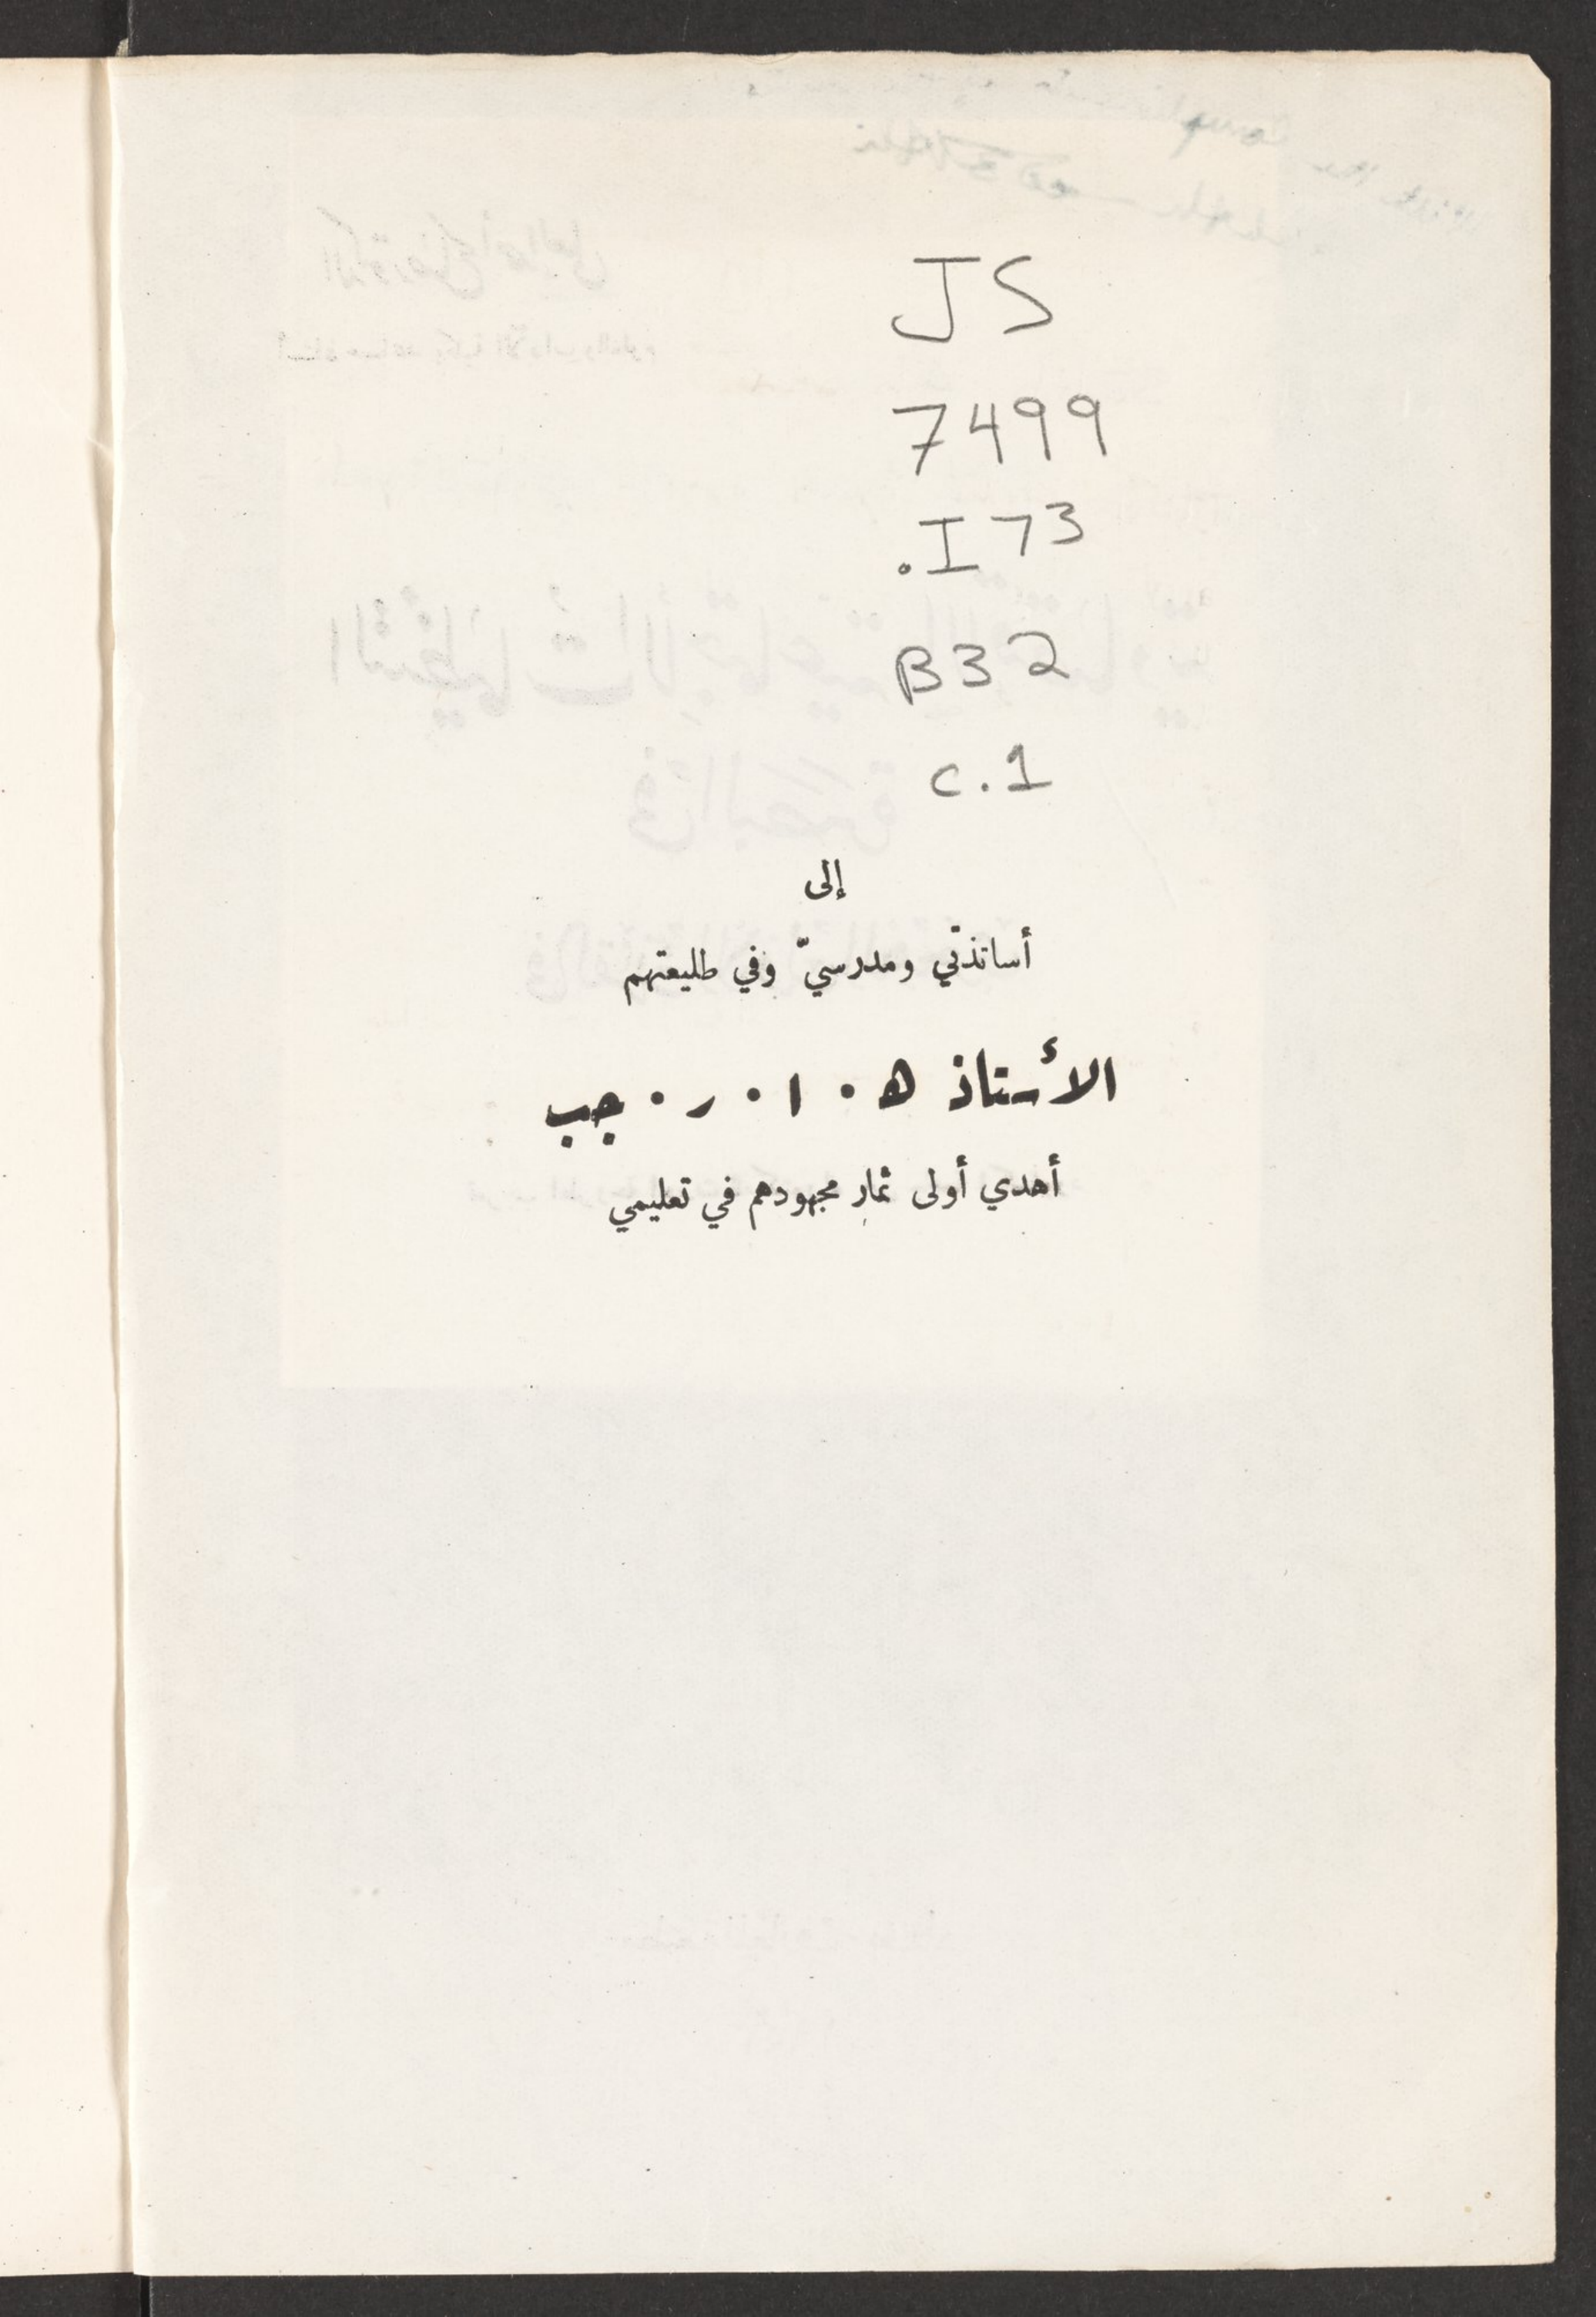 JS
7499
.I73
B32
c.1
إلى
أساتذتي ومدرسيّ وفي طليعتهم
الأستاذ ه . ا . ر . جب
أهدي أولى ثمار مجهودهم في تعليمي